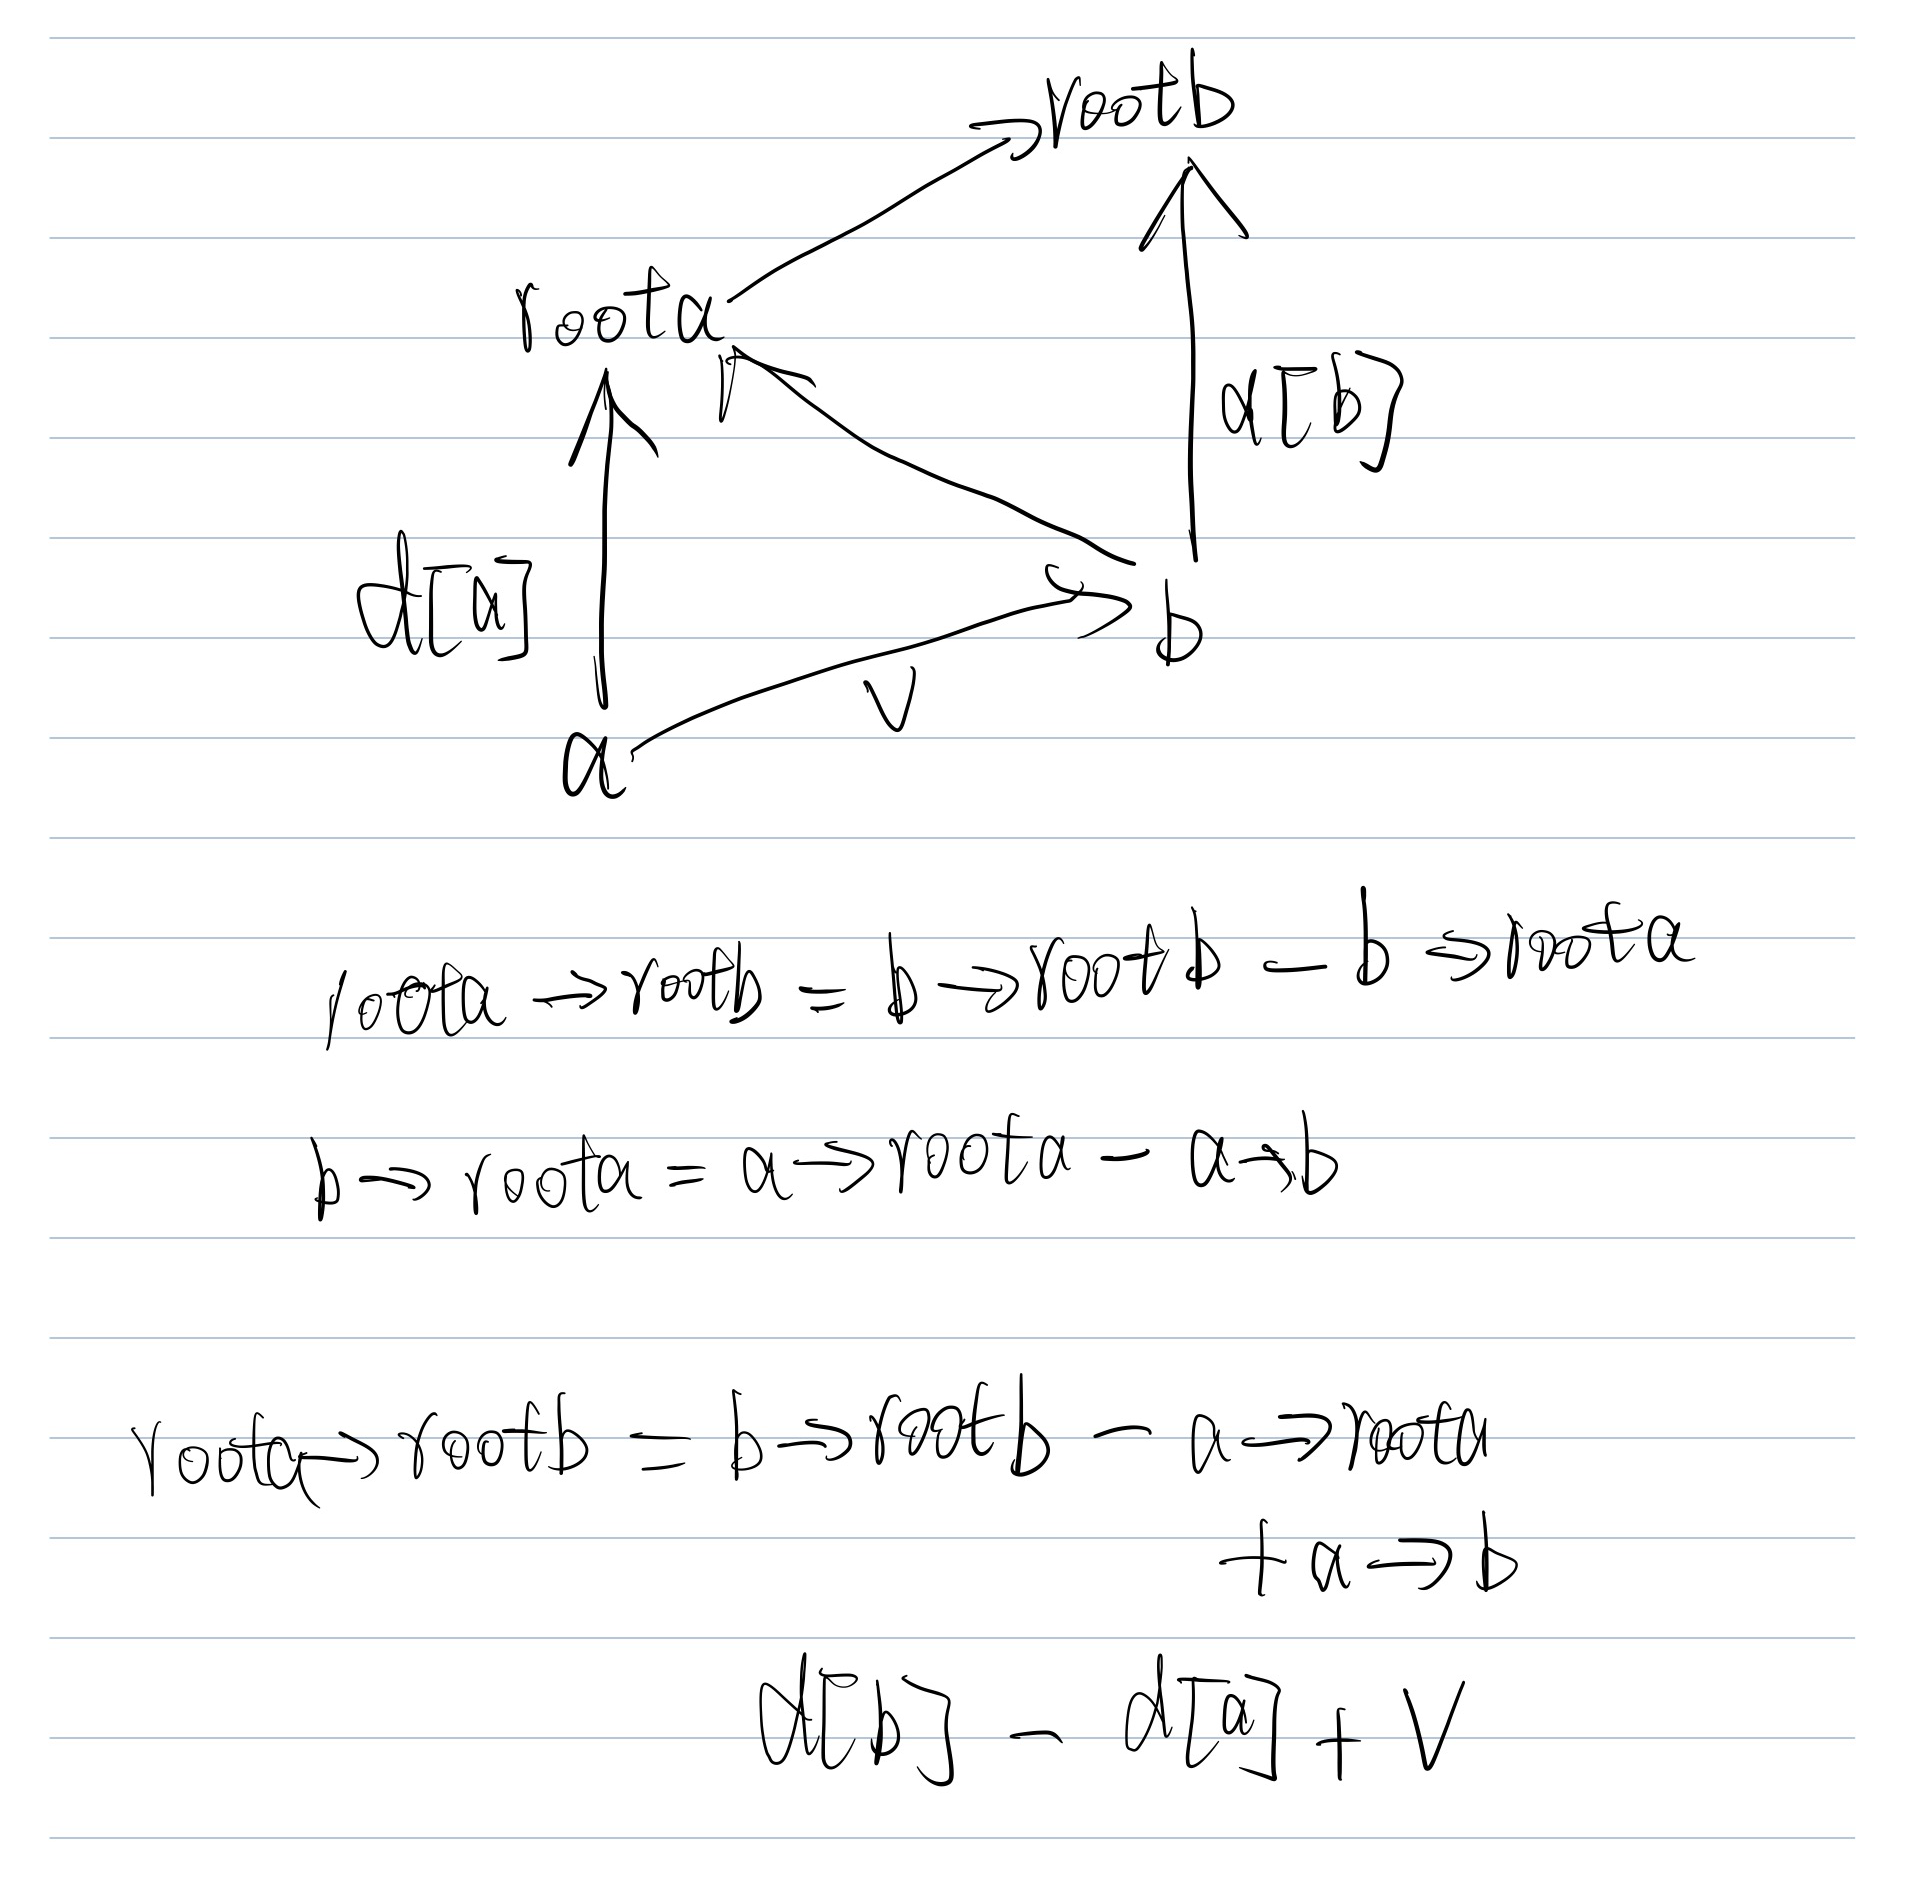 rootb
roota
d[b]
d[a]
b
v
a
roota → rootb = b → rootb - b → roota
b → roota = a → roota - a → b
roota → rootb = b → rootb - a → roota
+ a → b
d[b] - d[a] + v